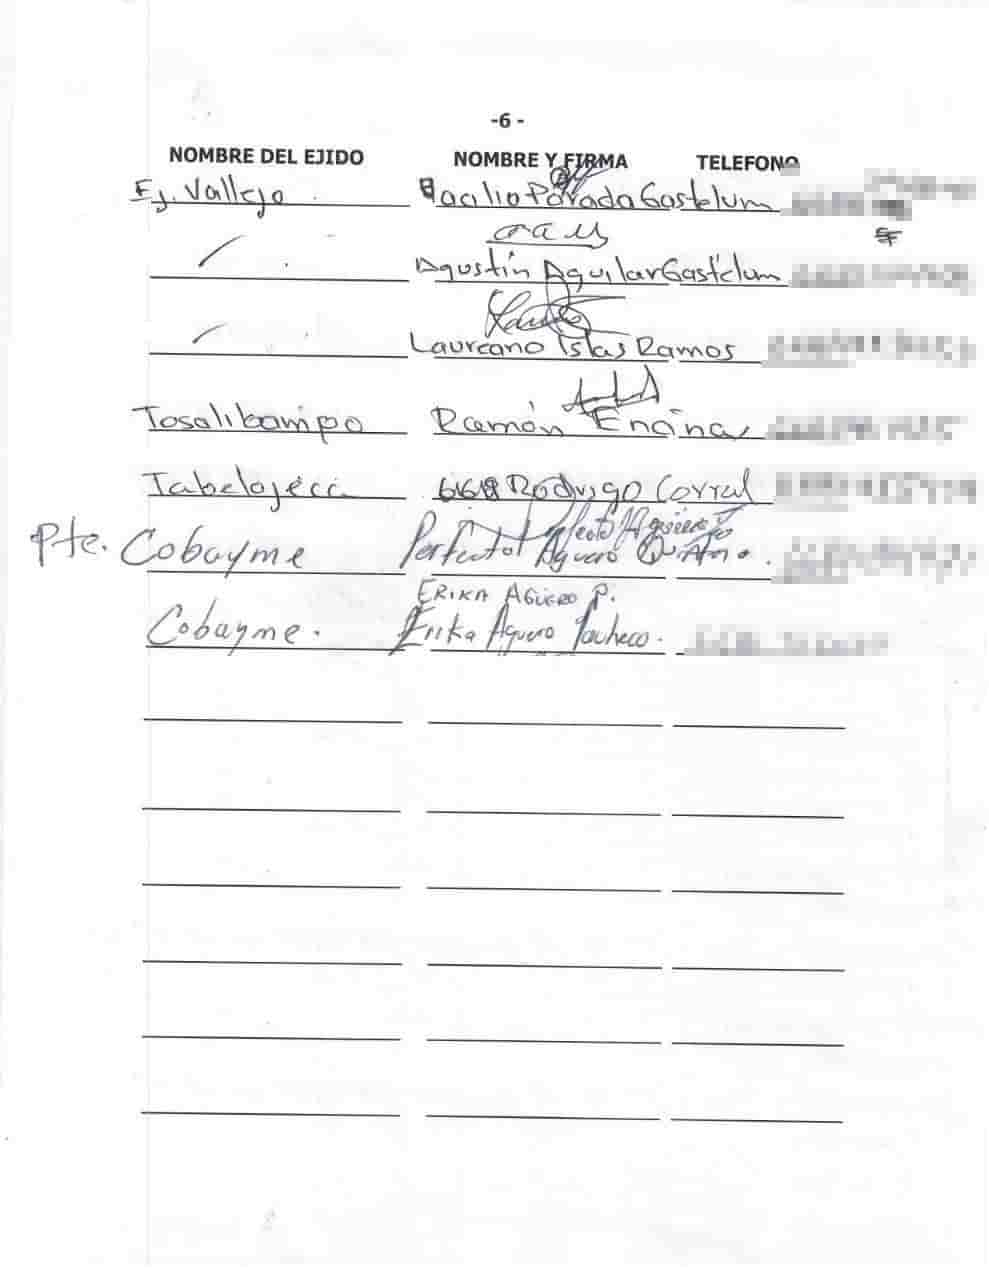 -6-
NOMBRE DEL EJIDO NOMBRE Y FIRMA TELEFONO
Ej. Vallejo. Parada Gastelum
Agustín Aguilar Gastélum
Laureano Islas Ramos
Tosalibampo Ramón Encinas
Tabelojeca 668 Rodrigo Corral
Pte. Cobayme Agüero
ERIKA AGÜERO P.
Cobayme. Erika Aguero Pacheco.